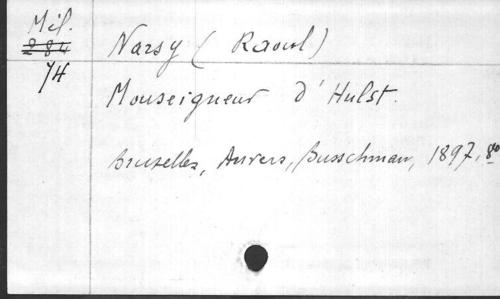 Mél.
284
74
Narsy (Raoul)
Monseigneur d'Hulst.
Bruxelles, Anvers, Busschman, 1897, 8º